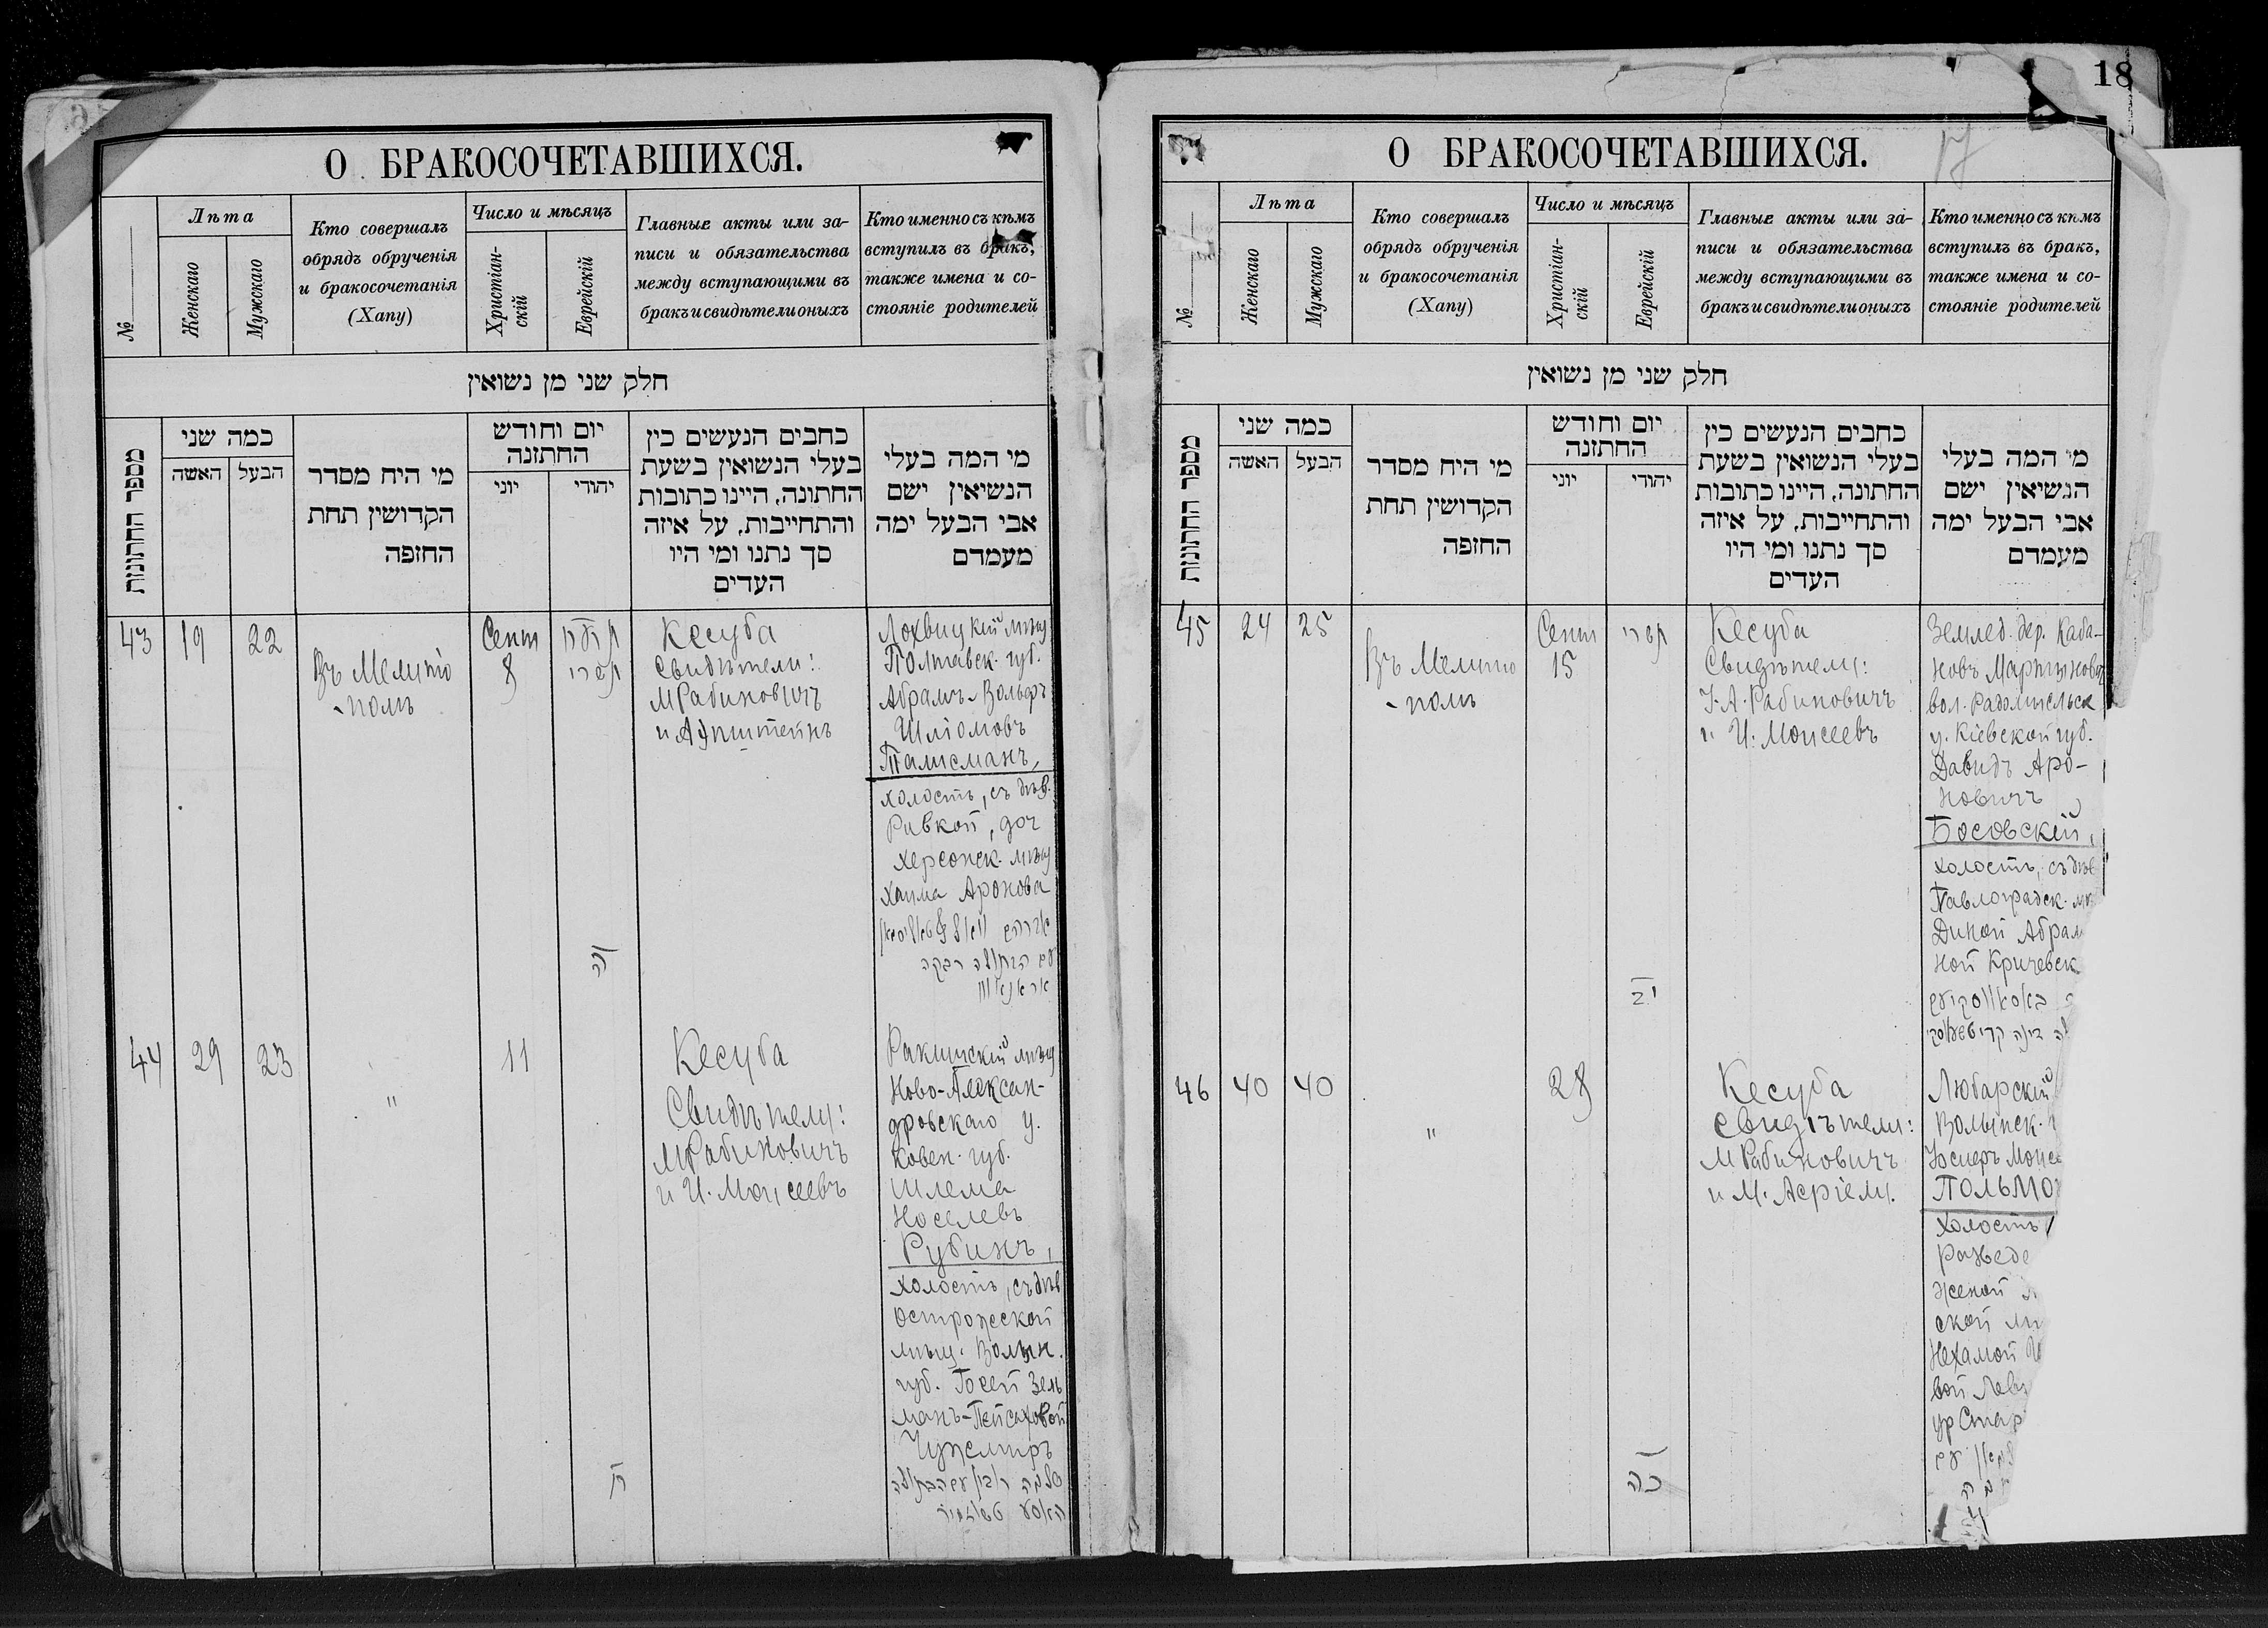 18
17
О БРАКОСОЧЕТАВШИХСЯ.
№
Лѣта
Женскаго
Мужскаго
Кто совершалъ
обрядъ обрученія
и бракосочетанія
(Хапу)
Число и мѣсяцъ
Христіан-
скій
Еврейскій
Главные акты или за-
писи и обязательства
между вступающими въ
бракъ и свидѣтели оныхъ
Кто именно съ кѣмъ
вступилъ въ бракъ,
также имена и со-
стояніе родителей
חלק שני מן נשואין
מספר החתונות
כמה שני
האשה
הבעל
מי היח מסדר
הקדושין תחת
החופה
יום וחודש
החתונה
יוני
יהודי
כחבים הנעשים כין
בעלי הנשואין בשעת
החתונה, היינו כתובות
והתחייבות, על איזה
סך נתנו ומי היו
העדים
מי המה בעלי
הנשיאין ישם
אבי הבעל ימה
מעמדם
43
19
22
Въ Мелито
-полѣ
Сент
8
תשרי
יה
Кесуба
Свидѣтели:
М Рабиновичъ
и А Эпштейнъ
Лохвицкій мѣщ
Полтавск. губ.
Абрамъ-Вольфъ
Шліомовъ
Талисманъ,
холостъ, съ дѣв.
Ривкой, доч
херсонск. мѣщ
Хаима Аронова
עם הבתולה רבקה
44
29
23
"
11
ח
Кесуба
Свидѣтели:
М Рабиновичъ
и И. Моисеевъ
Ракишскій мѣщ
Ново-Алексан-
дровскаго у.
Ковен. губ.
Шлема
Носелевъ
Рубинъ,
холостъ, съ дѣв
Острожской
мѣщ. Волын.
губ. Госей Зель
манъ-Пейсаховой
Чужмиръ
שלמה רובין עם הבתולה
О БРАКОСОЧЕТАВШИХСЯ.
№
Лѣта
Женскаго
Мужскаго
Кто совершалъ
обрядъ обрученія
и бракосочетанія
(Хапу)
Число и мѣсяцъ
Христіан-
скій
Еврейскій
Главные акты или за-
писи и обязательства
между вступающими въ
бракъ и свидѣтели оныхъ
Кто именно съ кѣмъ
вступилъ въ бракъ,
также имена и со-
стояніе родителей
חלק שני מן נשואין
מספר החתונות
כמה שני
האשה
הבעל
מי היח מסדר
הקדושין תחת
החופה
יום וחודש
החתונה
יוני
יהודי
כחבים הנעשים כין
בעלי הנשואין בשעת
החתונה, היינו כתובות
והתחייבות, על איזה
סך נתנו ומי היו
העדים
מי המה בעלי
הנשיאין ישם
אבי הבעל ימה
מעמדם
45
24
25
Въ Мелито
-полѣ
Сент
15
תשרי
יב
Кесуба
Свидѣтели:
І. А. Рабиновичъ
и И. Моисеевъ
Землед. дер. Каба-
новъ Мартынов
вол. Радомысльск
у. Кіевской губ.
Давидъ Аро-
новичъ
Босовскій,
холостъ, съ дѣв
Павлоградск. мѣ
Диной Абрам
ной Кричевск
דינה
46
40
40
"
28
כה
Кесуба
Свидѣтели:
М Рабиновичъ
и М. Асріели.
Любарскій
Волынск.
Юсперъ Моисе
Польмо
холостъ
Разведе
женой
ской
Нехамой
вой Леви
ур Стар